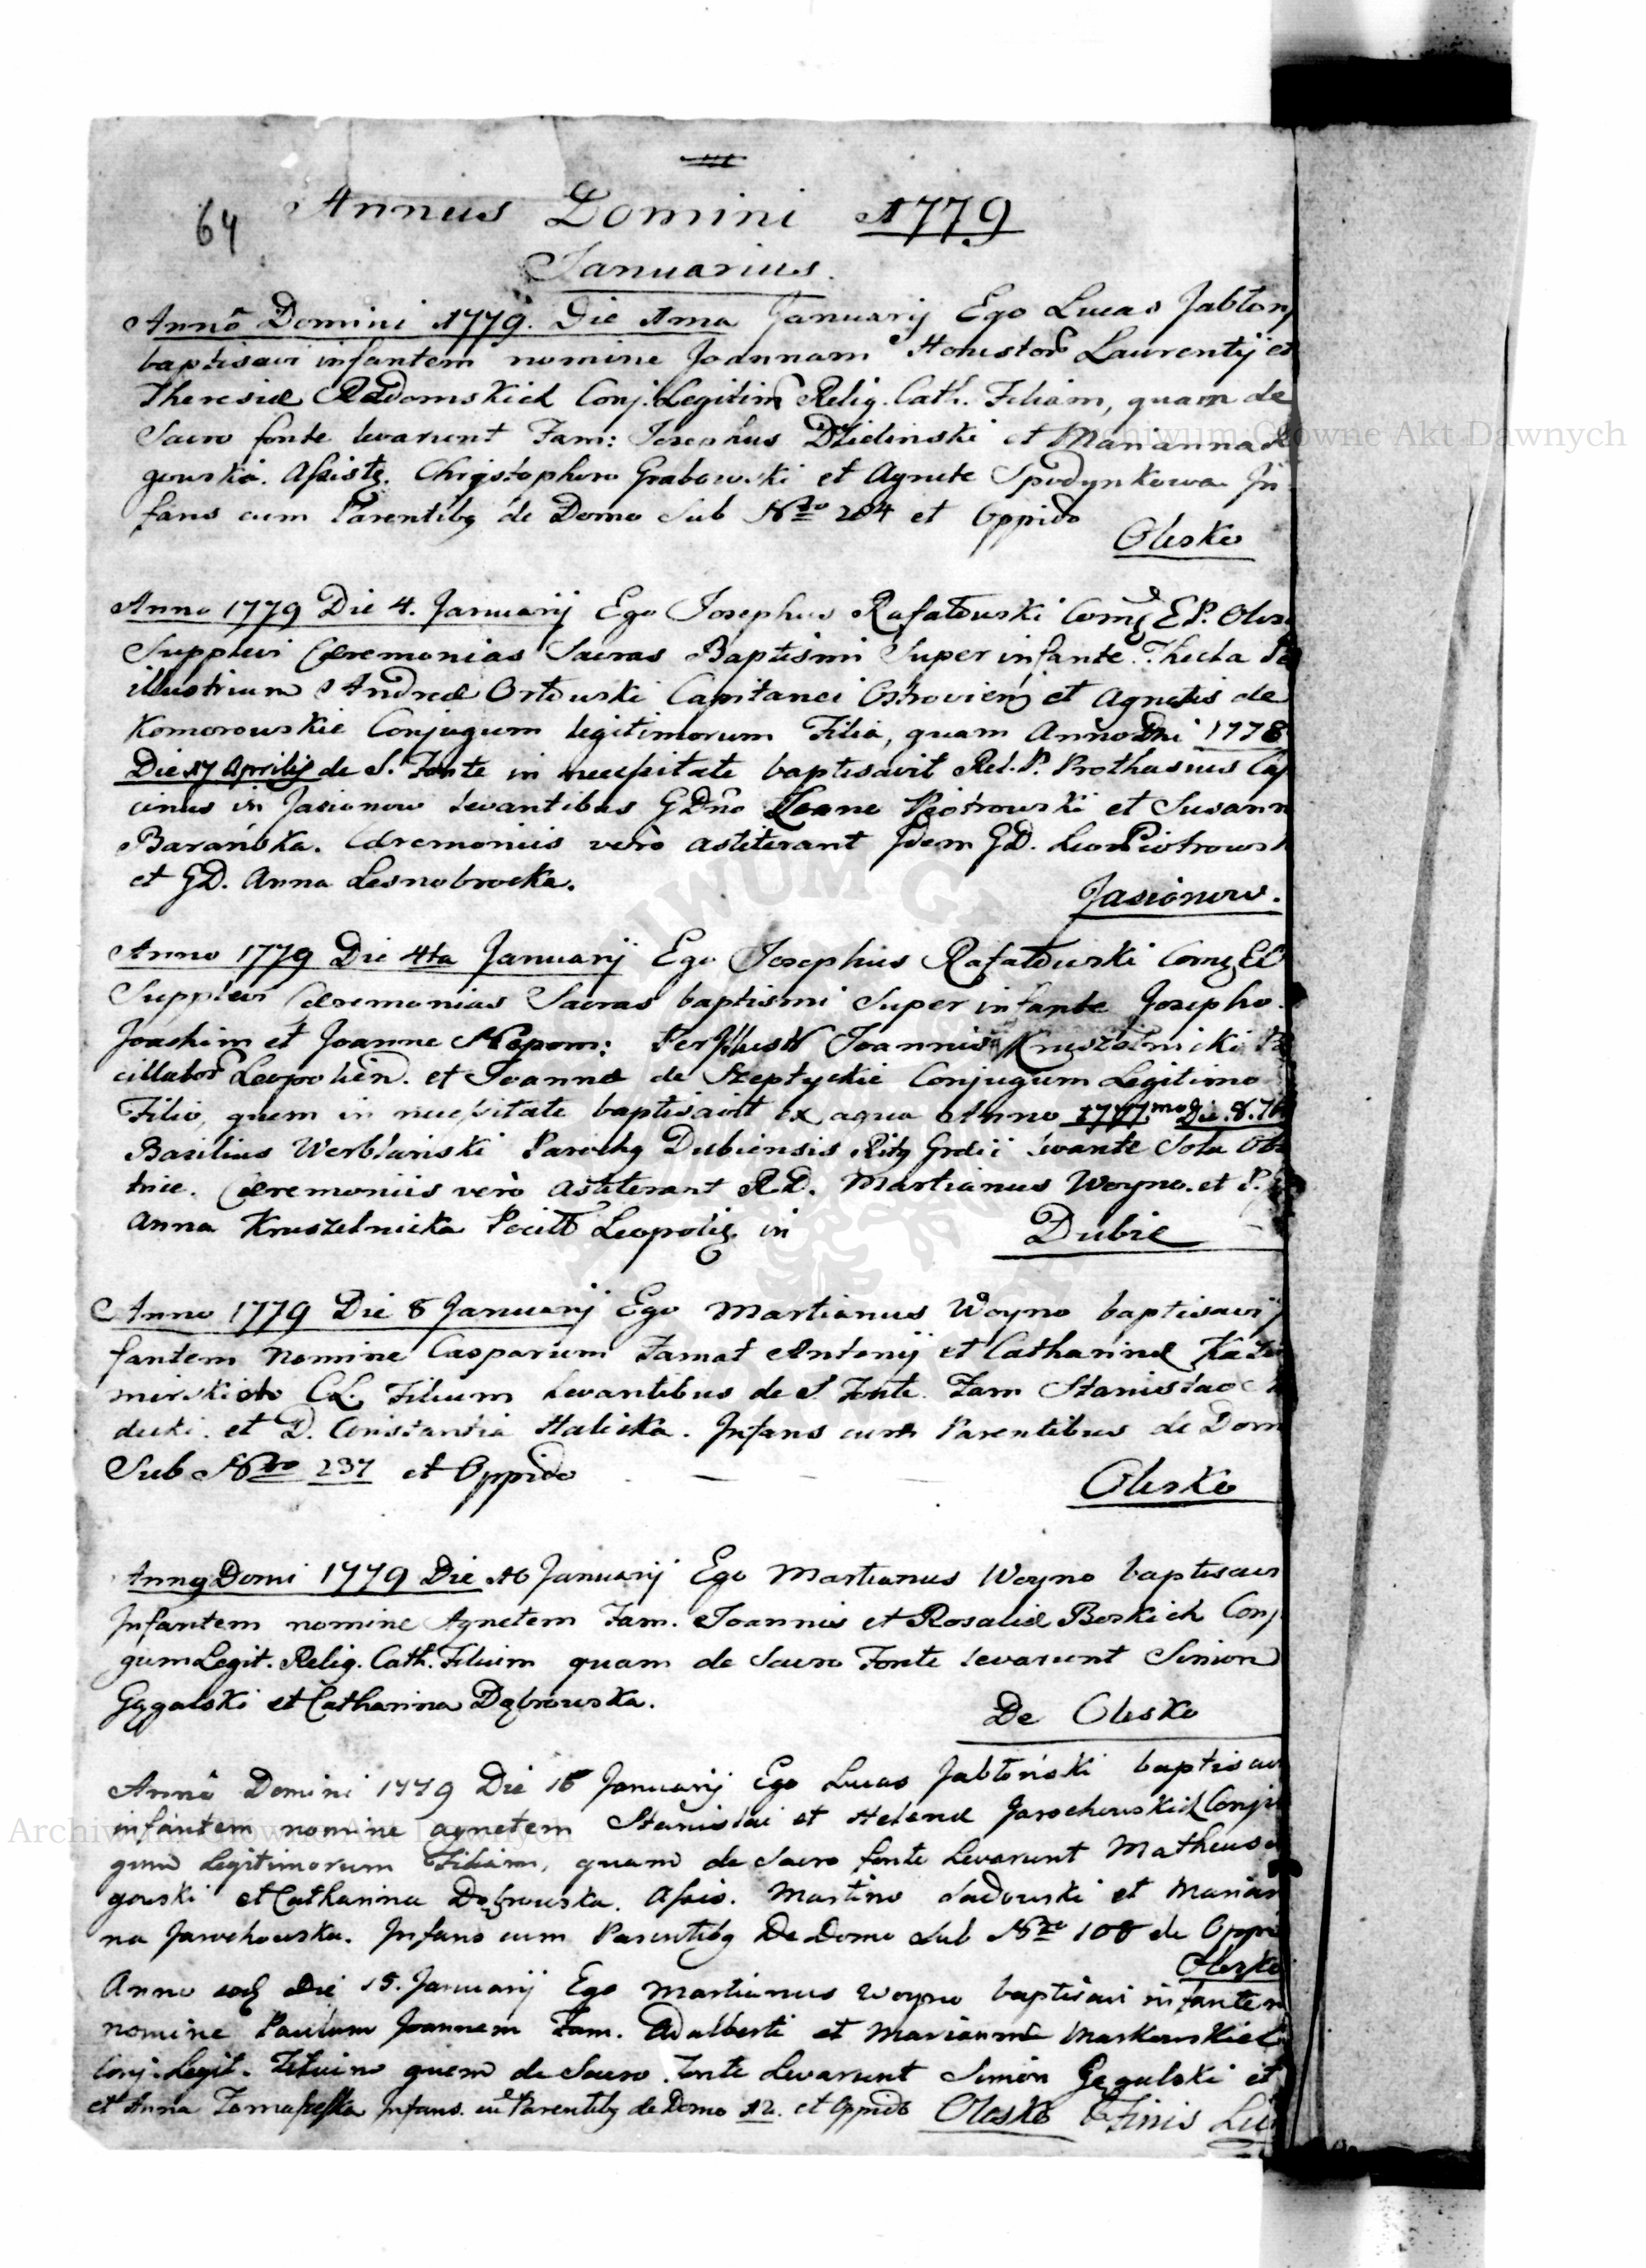 64
Annus Domini 1779
Januarius.
Anno Domini 1779. Die 1ma Januarij Ego Lucas Jabłon
baptisavi infantem nomine Joannam Laurentij et
Theresiæ Radomskich Conj. Legitim Relig. Cath. Filiam, quam de
Sacro fonte levarunt Fam: Josephus Dzieдzinski et Marianna
gowska. Assistt. Christophoro Grabowski et Agnete Spodynkowa. In
fans cum Parentibg de Domo Sub Nro 204 et Oppido
Olesko
Anno 1779 Die 4. Januarij Ego Josephus Rafałowski Com E P. Oles
Supplevi Cæremonias Sacras Baptismi Super infante Thecla
illustrium Andreæ Orłowski Capitanei et Agnetis de
Komorowskie Conjugum legitimorum Filia, quam Anno Dni 1778
Die 17 Aprilis de S. Fonte in necessitate baptisavit Rel. P. Prothasius Cap
cinus in Jasionow levantibus GDno Leone Piotrowski et Susann
Barańska. Cæremoniis verò astiterant Idem GD. Leo Piotrowsk
et GD. Anna Lesnobrocka.
Jasionow.
Anno 1779 Die 4ta Januarij Ego Josephus Rafałowski
Supplevi Cæremonias Sacras baptismi Super infante Josepho
Joachim et Joanne Nepom: Joannis Kruszelnicki
cillator Leopolien. et Joannæ de Szeptyckie Conjugum Legitimo
Filio, quem in necessitate baptisavit ex aqua Anno 1777mo Die. 8.
Basilius Werblański Parochg Dubiensis Ritg Græci levante Sola Obs
trice. Cæremoniis verò astiterant RD. Martianus Woyno. et P.
Anna Kruszelnicka Leopolig. in Dubie
Anno 1779 Die 8 Januarij Ego Martianus Woyno baptisavi
fantem Nomine Casparum Famat Antonij et Catharinæ Kazi
mirskich CL. Filium levantibus de S. Fonte. Fam Stanislao
ducki. et D. Constantia Halicka. Infans cum Parentibus de Dom
Sub Nro 237 et Oppido
Olesko
Anng Domi 1779 Die 10 Januarij Ego Martianus Woyno baptisavi
Infantem nomine Agnetem Fam. Joannis et Rosaliæ Berskich Conj
gum Legit. Relig. Cath. Filiam quam de Sacro Fonte levarunt Simon
Gęgalski et Catharina Dąbrowska.
De Olesko
Anno Domini 1779 Die 15 Januarij Ego Lucas Jabłoński baptisavi
infantem nomine Agnetem Stanislai et Helenæ Jarochowskich Conju
gum Legitimorum Filiam, quam de Sacro fonte Levarunt Matheus
gowski et Catharina Dąbrowska. Assis. Martino Sadowski et Marian
na Jarochowska. Infans cum Parentibg De Domo Sub Nro 108 de Oppi
Olesko
Anno eod Die 15. Januarij Ego Martianus Woyno baptisavi infantem
nomine Paulum Joannem Fam. Adalberti et Mariannæ Markowskich
Conj. Legit. Filium quem de Sacro Fonte Levarunt Simon Gęgalski et
et Anna Infans. cū Parentibg de Domo 12. et Oppido Olesko Finis
Archiwum Główne Akt Dawnych
Archiwum Główne Akt Dawnych